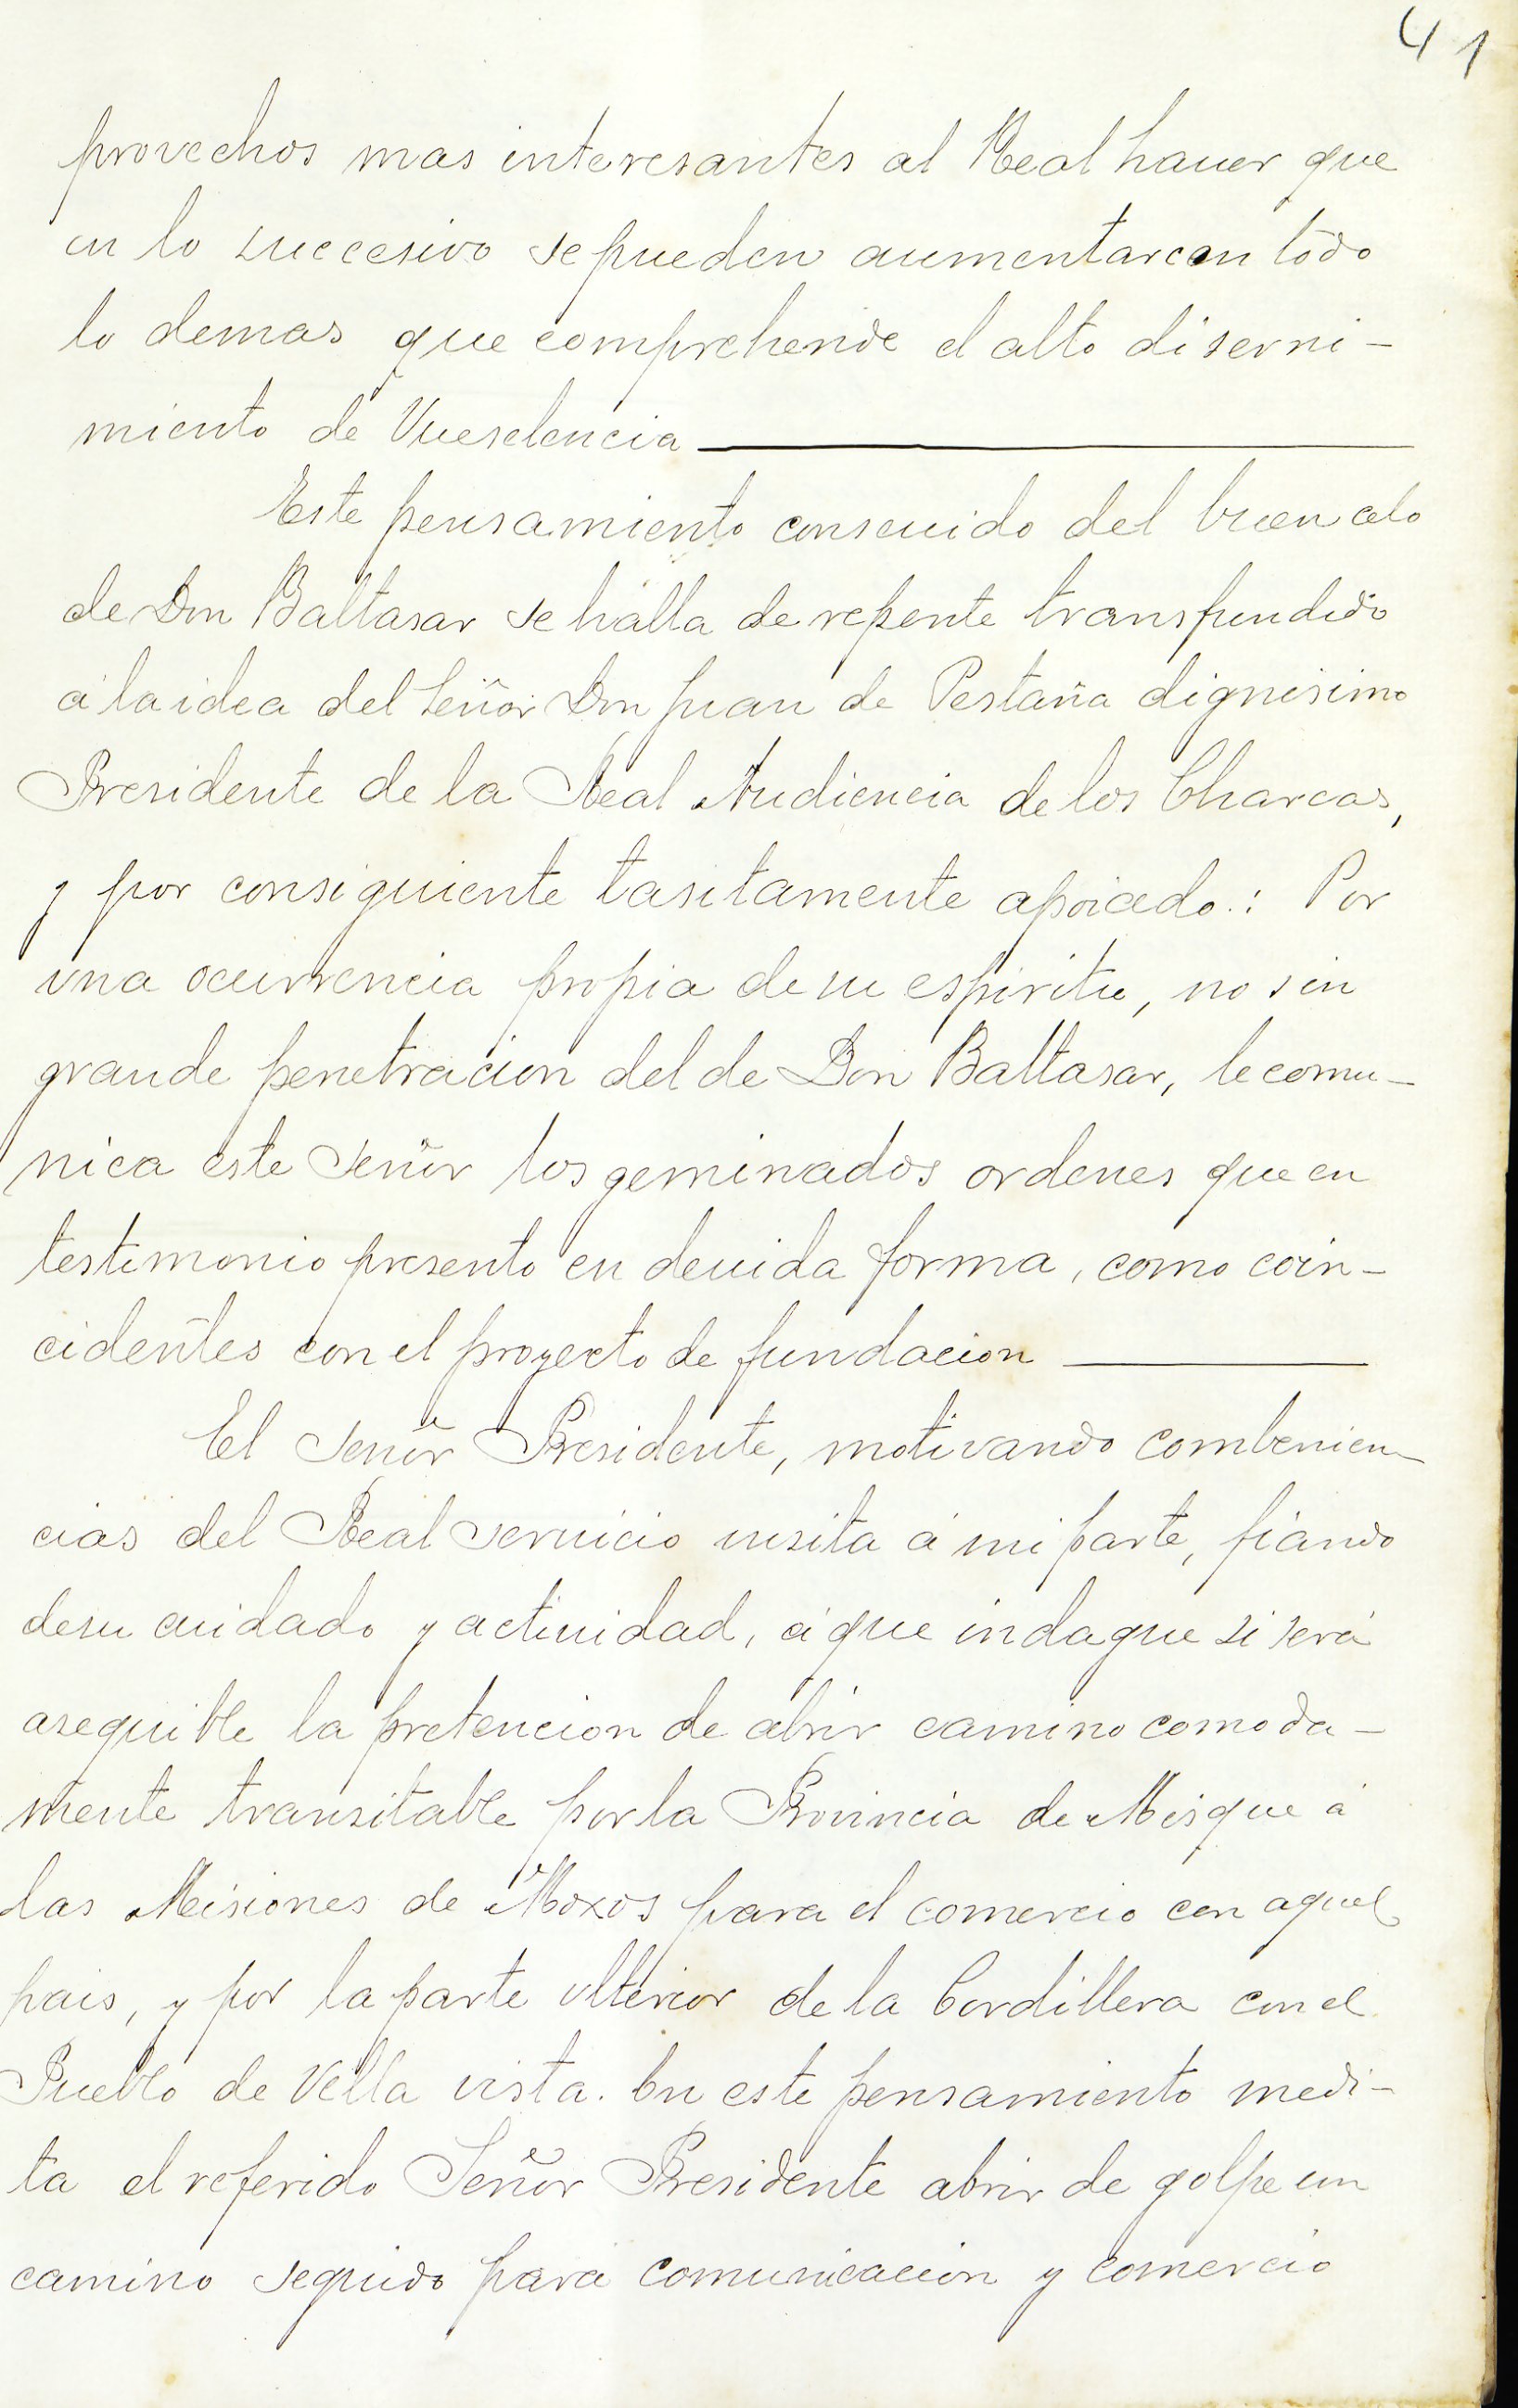 41
provechos mas interesantes al Real hauer que
en lo succesivo se pueden aumentar con todo
lo demas que comprehende el alto diserni-
miento de Vueselencia
Este pensamiento conseuido del buen celo
de Don Baltasar se halla de repente transfundido
á la idea del Señor Don Juan de Pestaña dignisimo
Presidente de la Real Audiencia de los Charcas,
y por consiguiente tasitamente apoiado.: Por
una ocurrencia propia de su espiritu, no sin
grande penetracion del de Don Baltasar, le comu-
nica este Señor los geminados ordenes que en
testimonio presento en deuida forma, como coin-
cidentes con el proyecto de fundacion
El Señor Presidente, motivando combenien
cias del Real seruicio insita á mi parte, fiando
de su cuidado y actiuidad, á que indague si será
asequible la pretencion de abrir camino comoda-
mente transitable por la Prouincia de Misque á
las Misiones de Moxos para el comercio con aquel
pais, y por la parte ulterior de la Cordillera con el
Pueblo de Vella vista. En este pensamiento medi-
ta el referido Señor Presidente abrir de golpe un
camino seguido para comunicacion y comercio